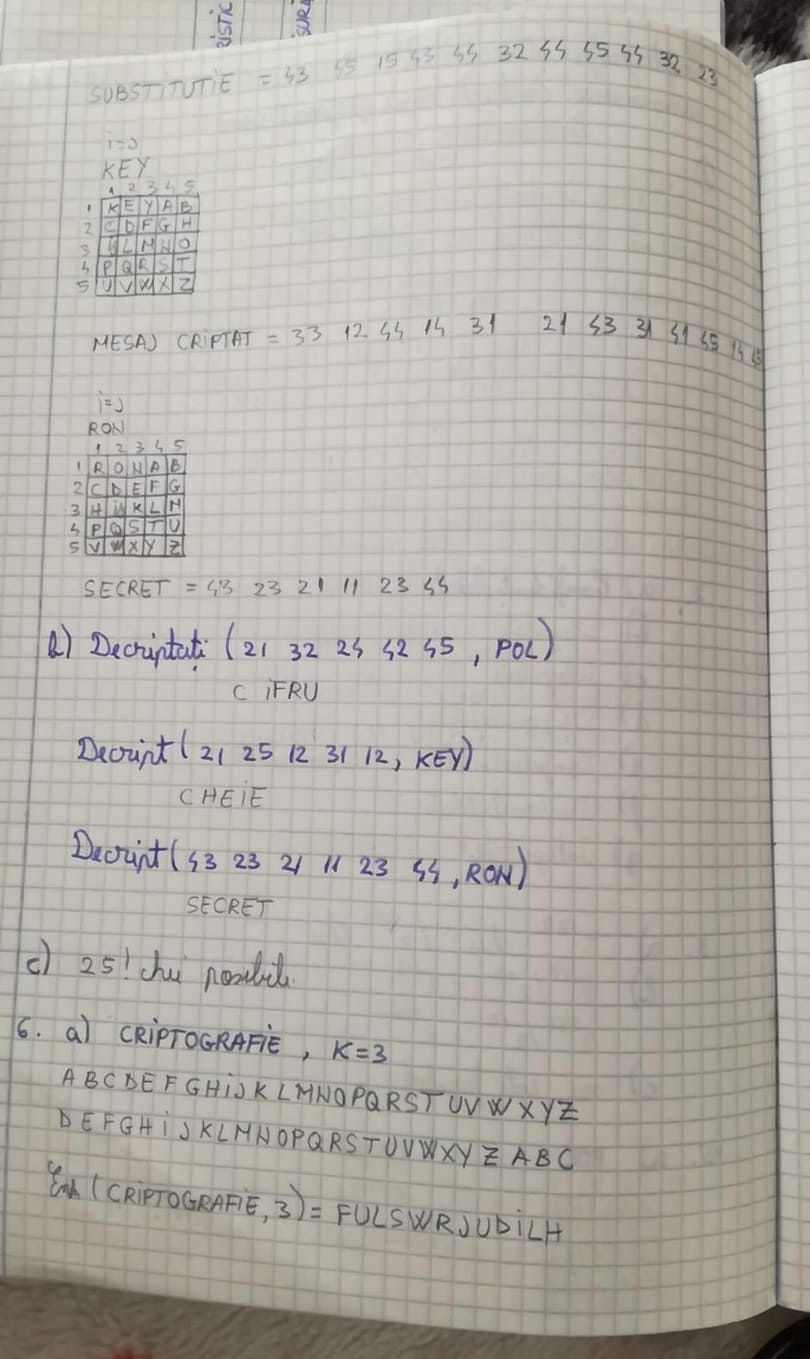 RISTIC
SURA
SUBSTITUTiE = 43 45 15 43 44 32 44 45 44 32 23
i=J
KEY
1 2 3 4 5
1 K E Y A B
2 C D F G H
3 L M N O
4 P Q R S T
5 U V W X Z
MESAJ CRiPTAT = 33 12 44 14 31 21 43 31 41 45 14 45
i=J
RON
1 2 3 4 5
1 R O N A B
2 C D E F G
3 H iJ K L M
4 P Q S T U
5 V W X Y Z
SECRET = 43 23 21 11 23 44
b) Decriptati (21 32 24 42 45 , POL)
C iFRU
Decript( 21 25 12 31 12, KEY)
CHEiE
Decript(43 23 21 11 23 44 , RON)
SECRET
c) 25! chei posibile.
6. a) CRiPTOGRAFiE , K=3
A B C D E F G H i J K L M N O P Q R S T U V W X Y Z
D E F G H i J K L M N O P Q R S T U V W X Y Z A B C
(CRiPTOGRAFiE, 3) = FULSWRJUDiLH